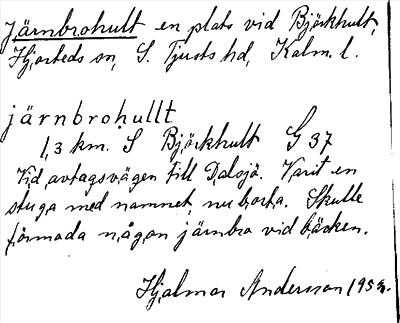 Järnbrohult en plats vid Björkhult,
Hjorteds sn, S. Tjusts hd, Kalm. l.
järnbrohullt
1,3 km. S Björkhult G 37
Vid avtagsvägen till Dalsjö. Varit en
stuga med namnet, nu borta. Skulle
förmoda någon järnbro vid bäcken.
Hjalmar Andersson 1953.